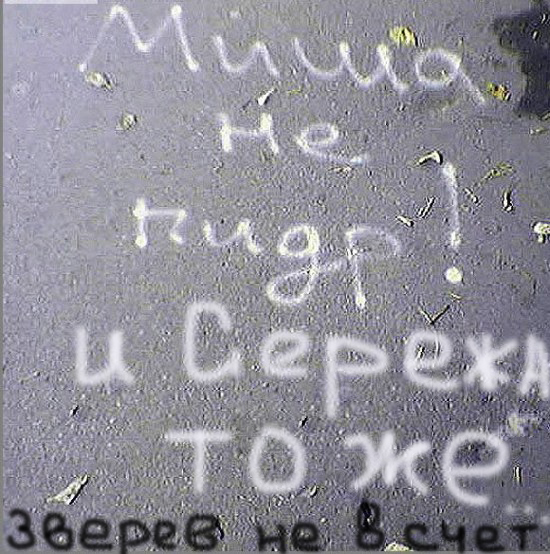 Миша
не
пидр!
и Сережа
тоже...
Зверев не в счет